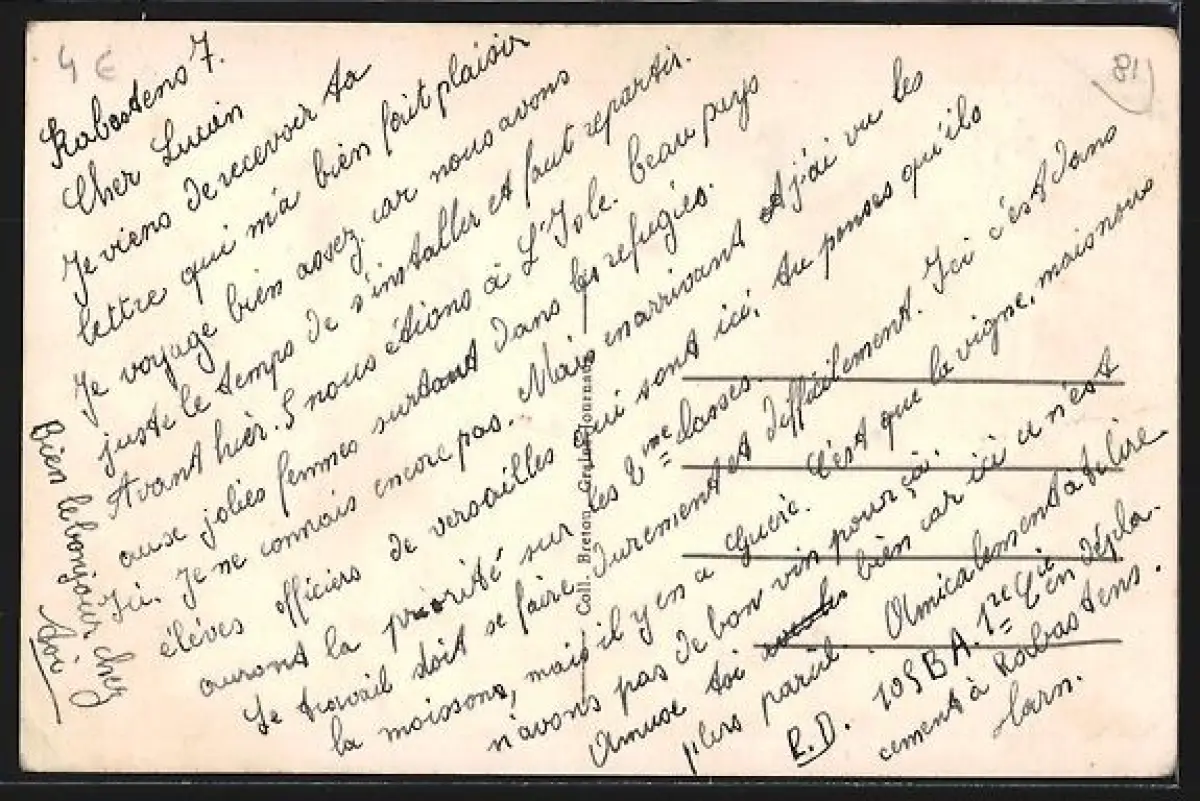 4 €
81
Rabastens 7.
Cher Lucien
Je viens de recevoir ta
lettre qui m'a bien fait plaisir
Je voyage bien assez, car nous avons
juste le temps de s'installer et faut repartir.
Avant hier. S nous étions à L'Isle. beau pays
aux jolies femmes surtout dans les refugiés.
Ici. Je ne connais encore pas. Mais en arrivant et j'ai vu les
éléves officiers de versailles qui sont ici, tu penses qu'ils
auront la priorité sur les 2eme classes.
Le travail doit se faire durement et difficilement. Ici c'est dans
la moissons, mais il y en a guère. C'est que la vigne, mais nous
n'avons pas de bon vin pour ça.
Amuse toi bien car ici ce n'est
plus pareil. Amicalement à te lire
R.D. 105 B A. 1re Cie en dépla-
cement à Rabastens.
Tarn.
Bien le bonjour chez
toi
Coll. Breton